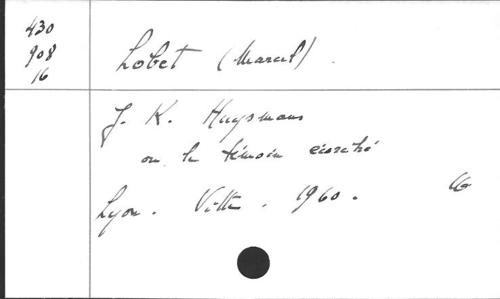 430
908
16
Lobet (Marcel).
J. K. Huysmans
ou le témoin écorché
Lyon. Vitte. 1960.